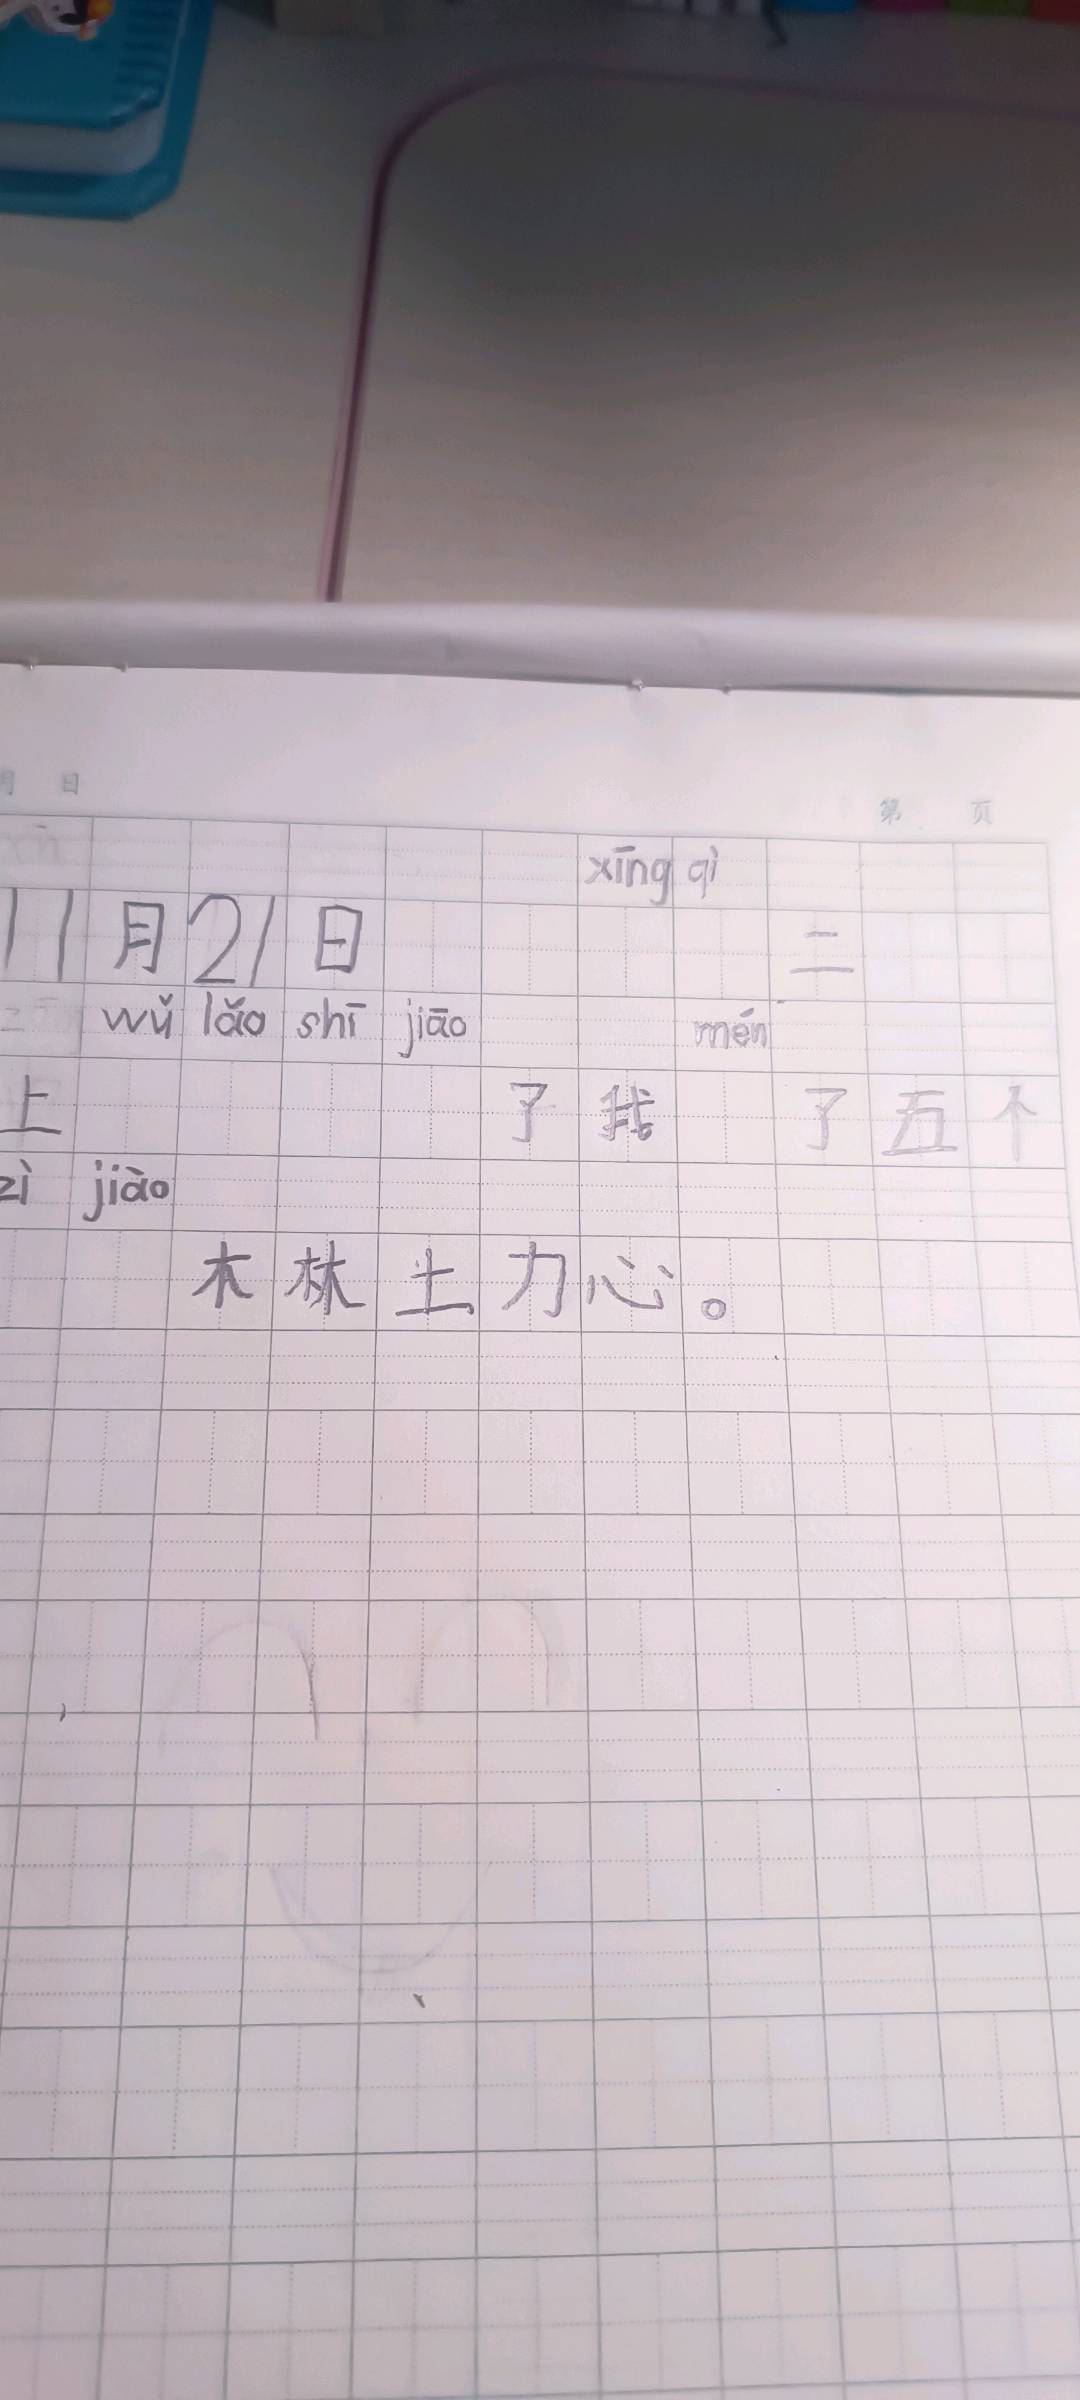 月 日
第 页
xīng qì
11月21日 二
wǔ lǎo shī jiāo mén
上 了我 了五个
zì jiào
木林土力心。